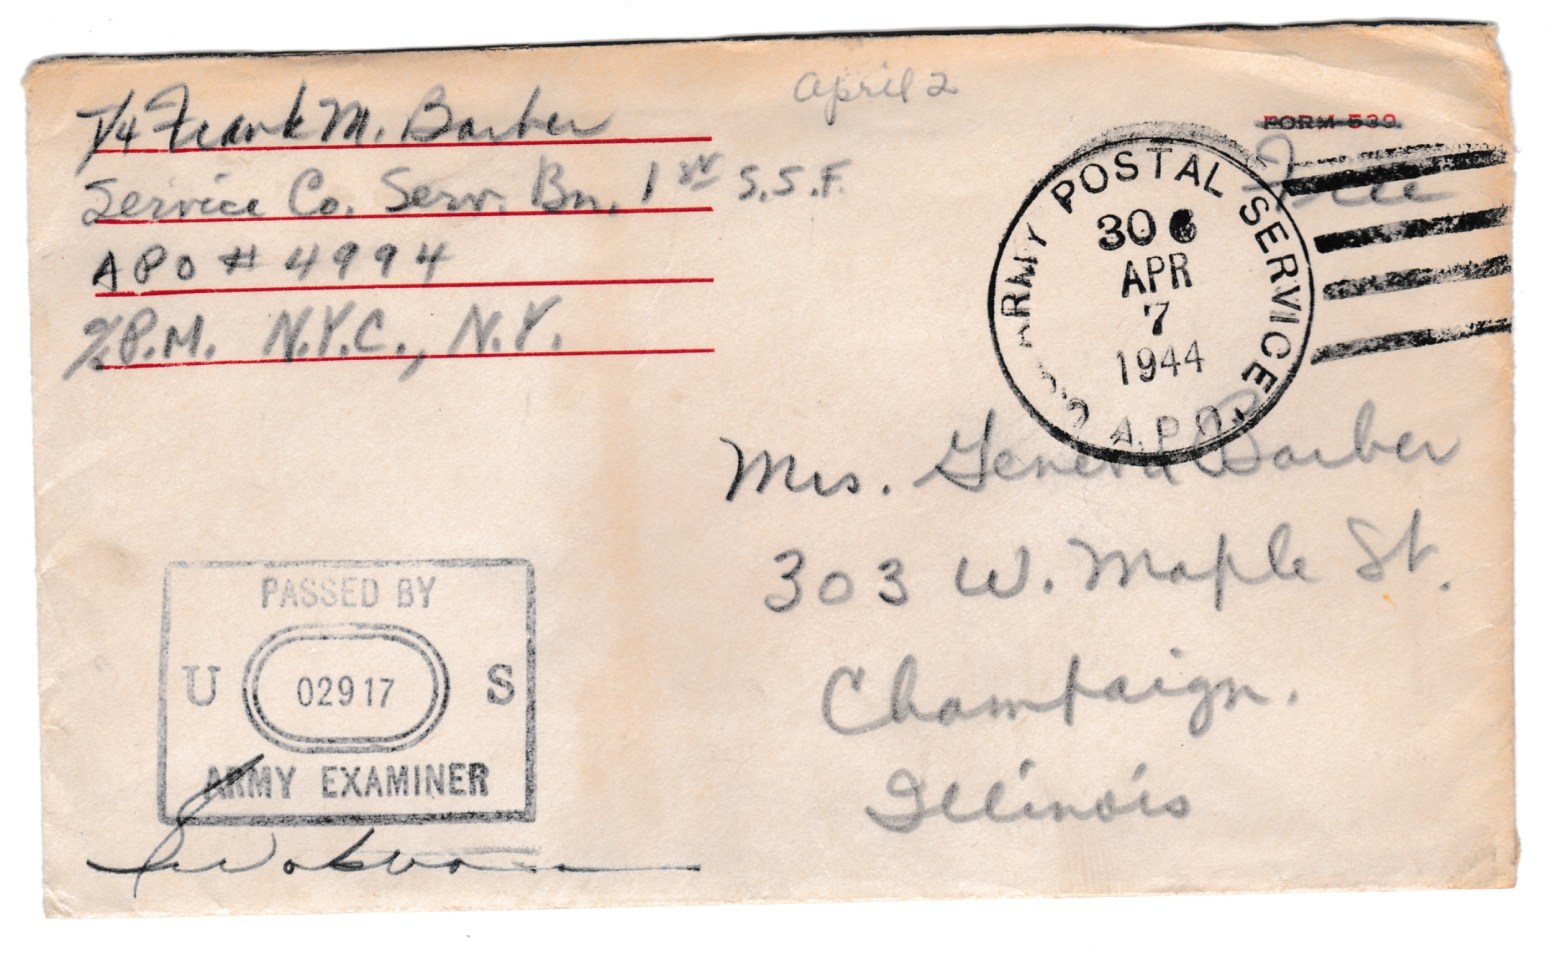 T/4 Frank M. Barber
Service Co. Serv. Bn. 1st S.S.F.
APO # 4994
℅ P.M. N.Y.C., N.Y.
April 2
FORM 539
Free
ARMY POSTAL SERVICE
306
APR
7
1944
A.P.O.
Mrs. Geneva Barber
303 W. Maple St.
Champaign.
Illinois
PASSED BY
U 02917 S
ARMY EXAMINER